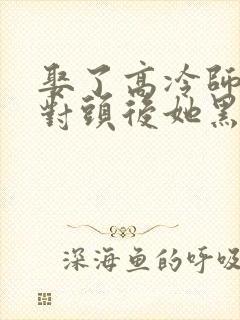 娶了高冷師
對頭後她黑
深海鱼的呼吸